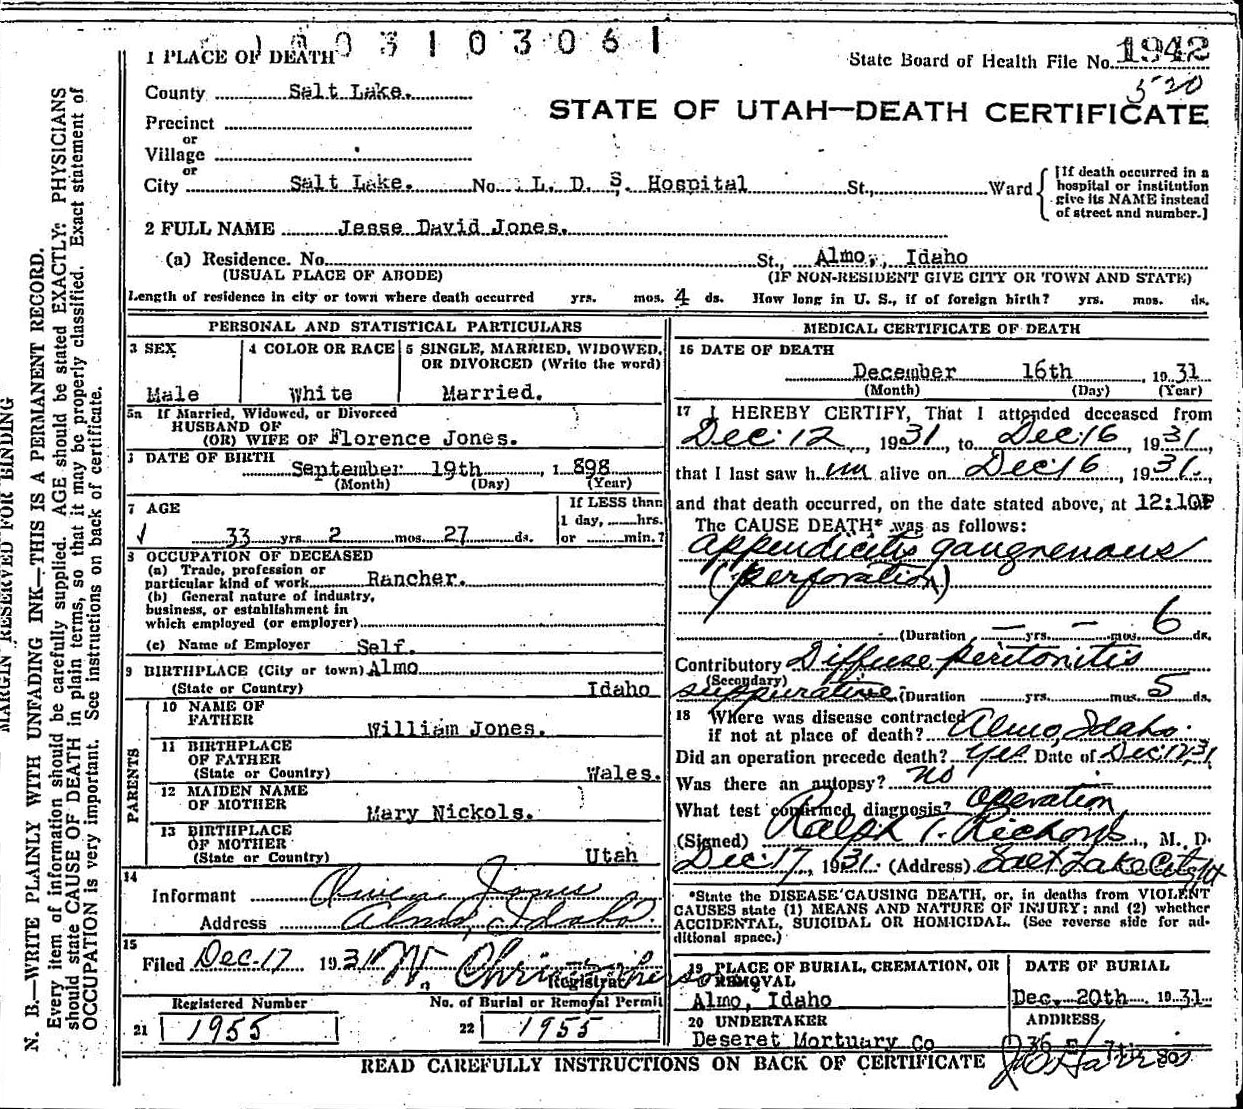 1003103061
1 PLACE OF DEATH
State Board of Health File No. 1942
520
County Salt Lake.
STATE OF UTAH—DEATH CERTIFICATE
Precinct
or
Village
or
City Salt Lake. No. L. D. S. Hospital St., Ward
[If death occurred in a hospital or institution give its NAME instead of street and number.]
2 FULL NAME Jesse David Jones.
(a) Residence. No. St., Almo, Idaho
(USUAL PLACE OF ABODE) (IF NON-RESIDENT GIVE CITY OR TOWN AND STATE)
Length of residence in city or town where death occurred yrs. mos. 4 ds. How long in U. S., if of foreign birth? yrs. mos. ds.
PERSONAL AND STATISTICAL PARTICULARS
3 SEX
Male
4 COLOR OR RACE
White
5 SINGLE, MARRIED, WIDOWED,
OR DIVORCED (Write the word)
Married.
5a If Married, Widowed, or Divorced
HUSBAND OF
(OR) WIFE OF Florence Jones.
DATE OF BIRTH
September 19th, 1898
(Month) (Day) (Year)
7 AGE
33 yrs. 2 mos. 27 ds.
If LESS than
1 day, hrs.
or min.?
8 OCCUPATION OF DECEASED
(a) Trade, profession or
particular kind of work Rancher.
(b) General nature of industry,
business, or establishment in
which employed (or employer)
(c) Name of Employer Self.
9 BIRTHPLACE (City or town) Almo
(State or Country) Idaho
PARENTS
10 NAME OF
FATHER William Jones.
11 BIRTHPLACE
OF FATHER
(State or Country) Wales.
12 MAIDEN NAME
OF MOTHER Mary Nickols.
13 BIRTHPLACE
OF MOTHER
(State or Country) Utah
14
Informant Jones
Address Almo, Idaho.
15
Filed Dec-17 1931 W. Christopherson
Registrar
Registered Number
21 1955
No. of Burial or Removal Permit
22 1955
MEDICAL CERTIFICATE OF DEATH
16 DATE OF DEATH
December 16th, 1931
(Month) (Day) (Year)
17 I HEREBY CERTIFY, That I attended deceased from
Dec. 12, 1931, to Dec 16, 1931
that I last saw him alive on Dec 16, 1931.,
and that death occurred, on the date stated above, at 12:10P
The CAUSE DEATH* was as follows:
Appendicitis gangrenous
(perforation)
(Duration yrs. mos. 6 ds.
Contributory Diffuse peritonitis
(Secondary)
suppurative (Duration yrs. mos. 5 ds.
18 Where was disease contracted
if not at place of death? Almo, Idaho.
Did an operation precede death? Yes Date of Dec 12, 31
Was there an autopsy? no
What test confirmed diagnosis? Operation
(Signed) Ralph T. Richards, M. D.
Dec. 17, 1931. (Address) Salt Lake City Ut
*State the DISEASE CAUSING DEATH, or, in deaths from VIOLENT
CAUSES state (1) MEANS AND NATURE OF INJURY; and (2) whether
ACCIDENTAL, SUICIDAL OR HOMICIDAL. (See reverse side for ad-
ditional space.)
19 PLACE OF BURIAL, CREMATION, OR
REMOVAL
Almo, Idaho
DATE OF BURIAL
Dec. 20th 1931
20 UNDERTAKER
Deseret Mortuary Co
ADDRESS
36 E 7th So
J. O. Harris
READ CAREFULLY INSTRUCTIONS ON BACK OF CERTIFICATE
MARGIN RESERVED FOR BINDING
N. B.—WRITE PLAINLY WITH UNFADING INK—THIS IS A PERMANENT RECORD.
Every item of information should be carefully supplied. AGE should be stated EXACTLY. PHYSICIANS
should state CAUSE OF DEATH in plain terms, so that it may be properly classified. Exact statement of
OCCUPATION is very important. See instructions on back of certificate.